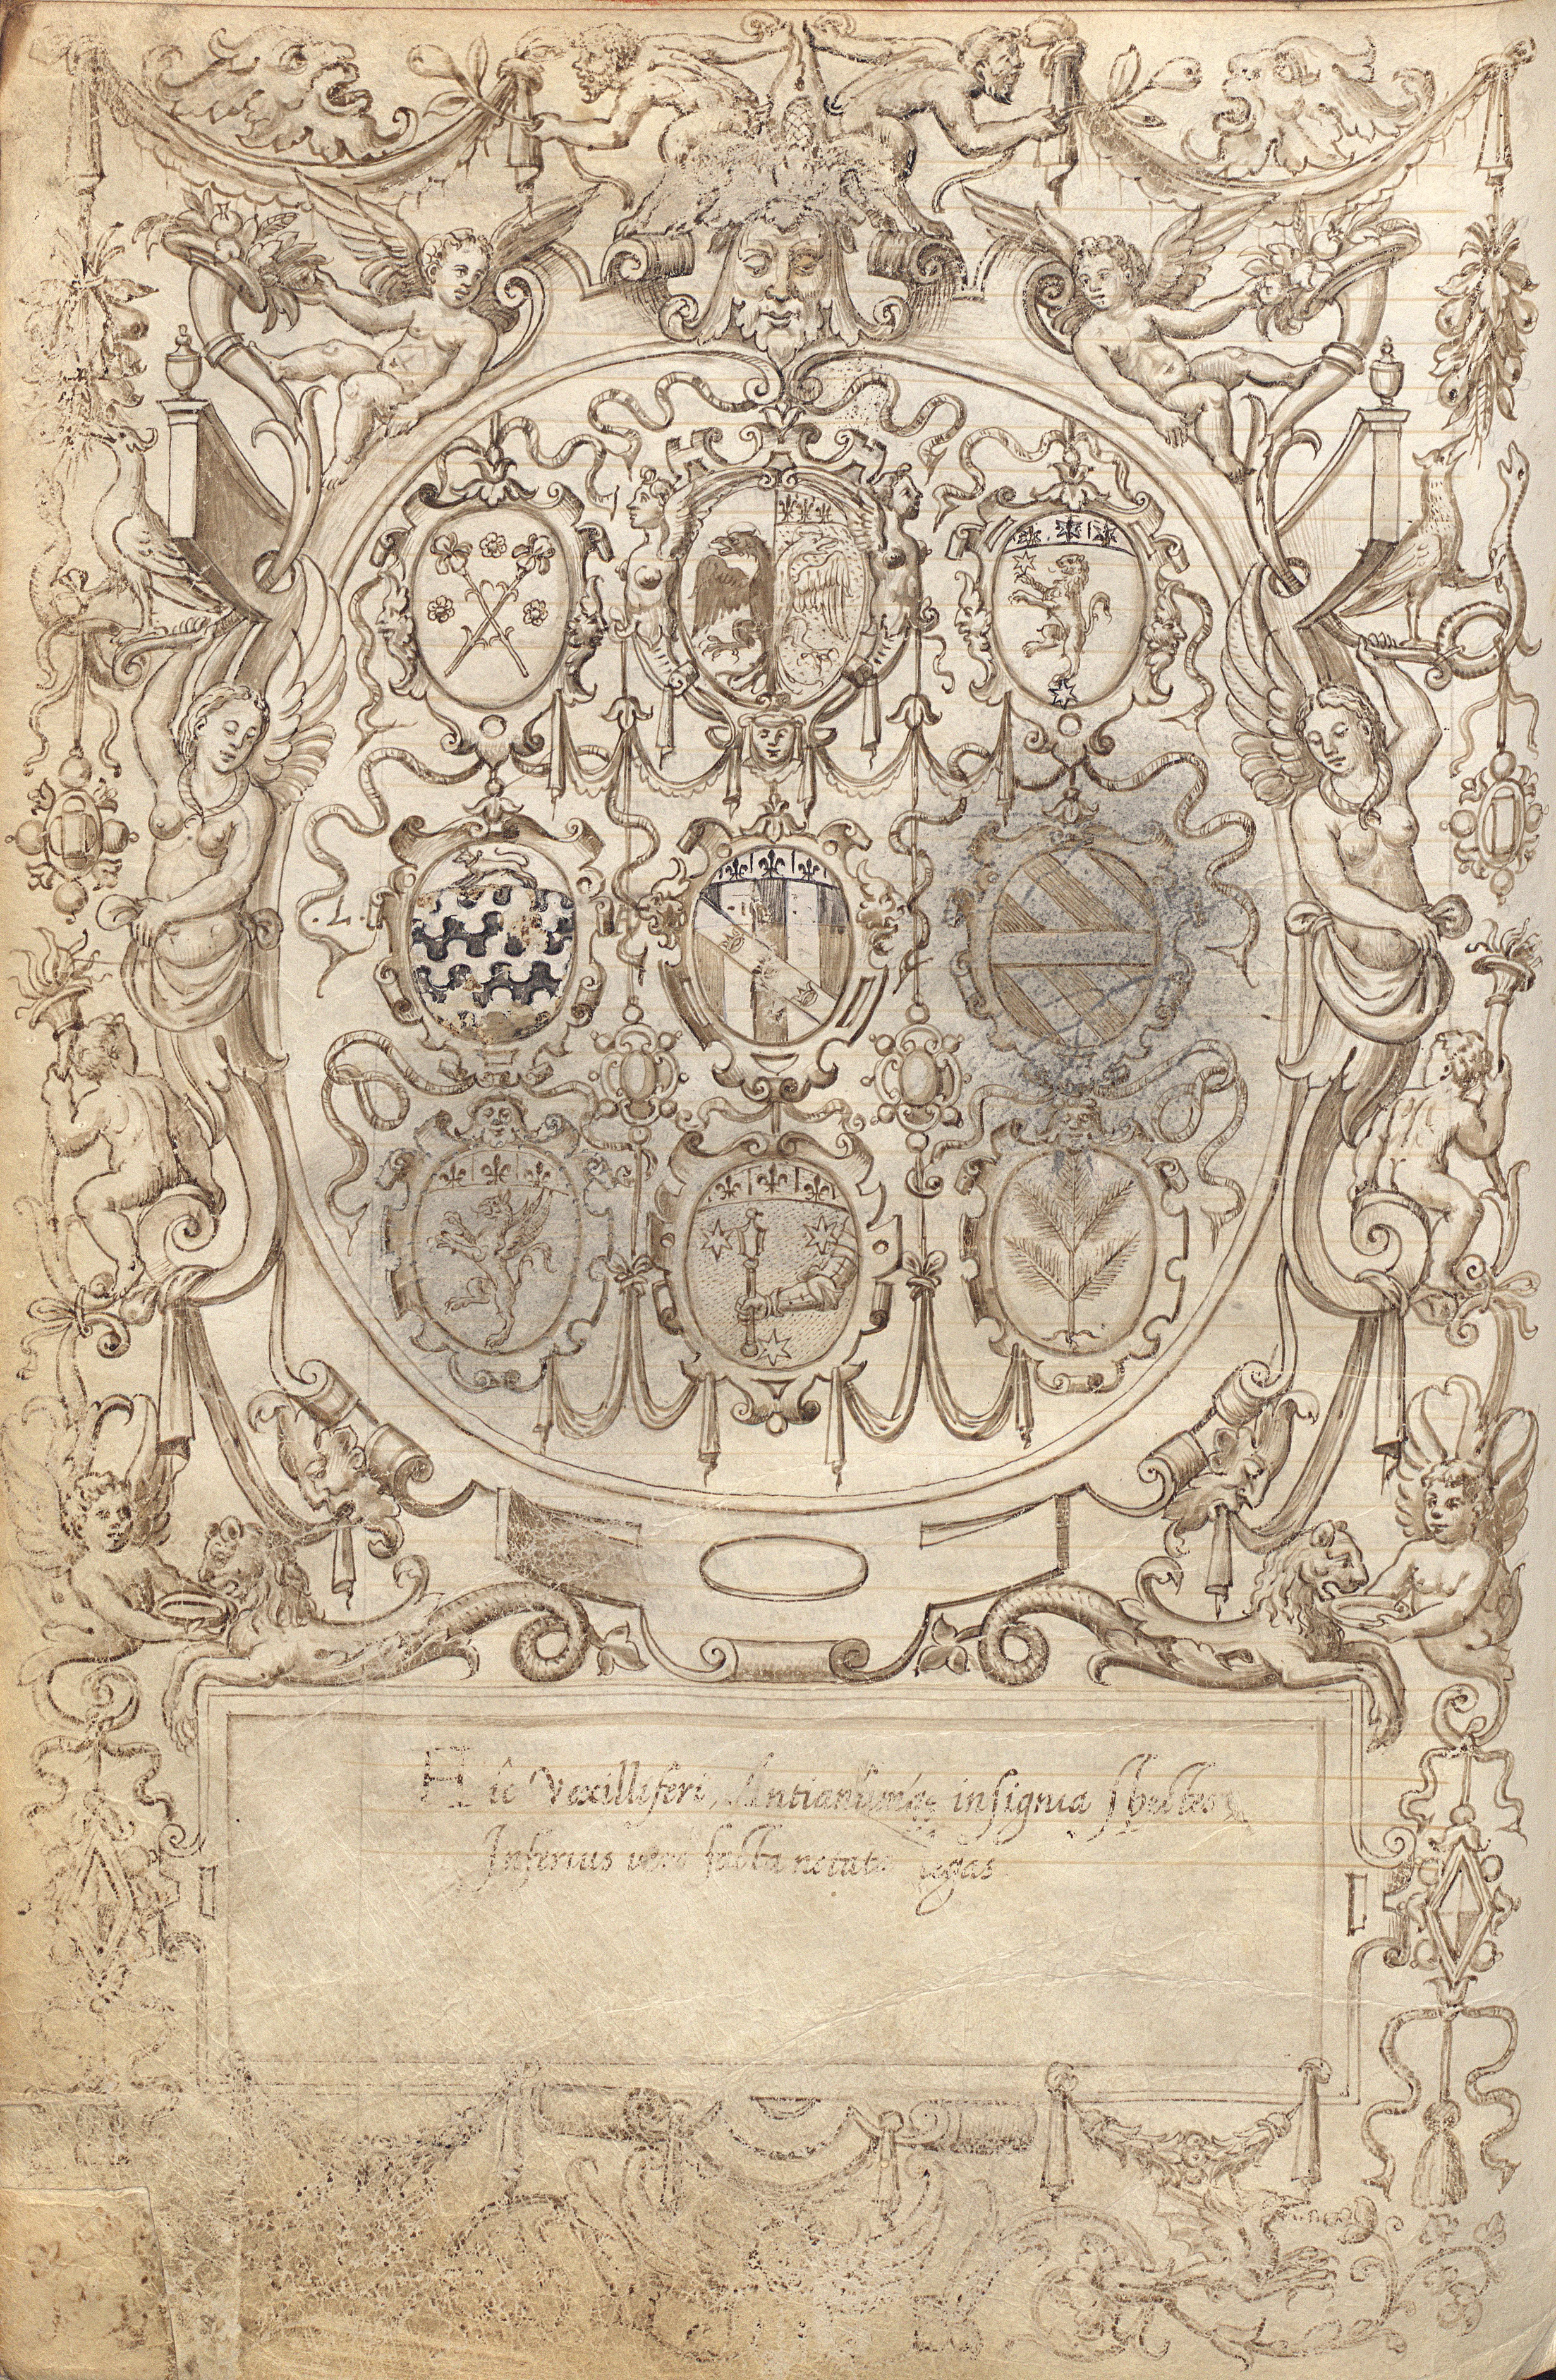 Hic Vexilliferi, Antianûmqꝫ insignia spectes
Inferius vero facta notata legas.
.L.